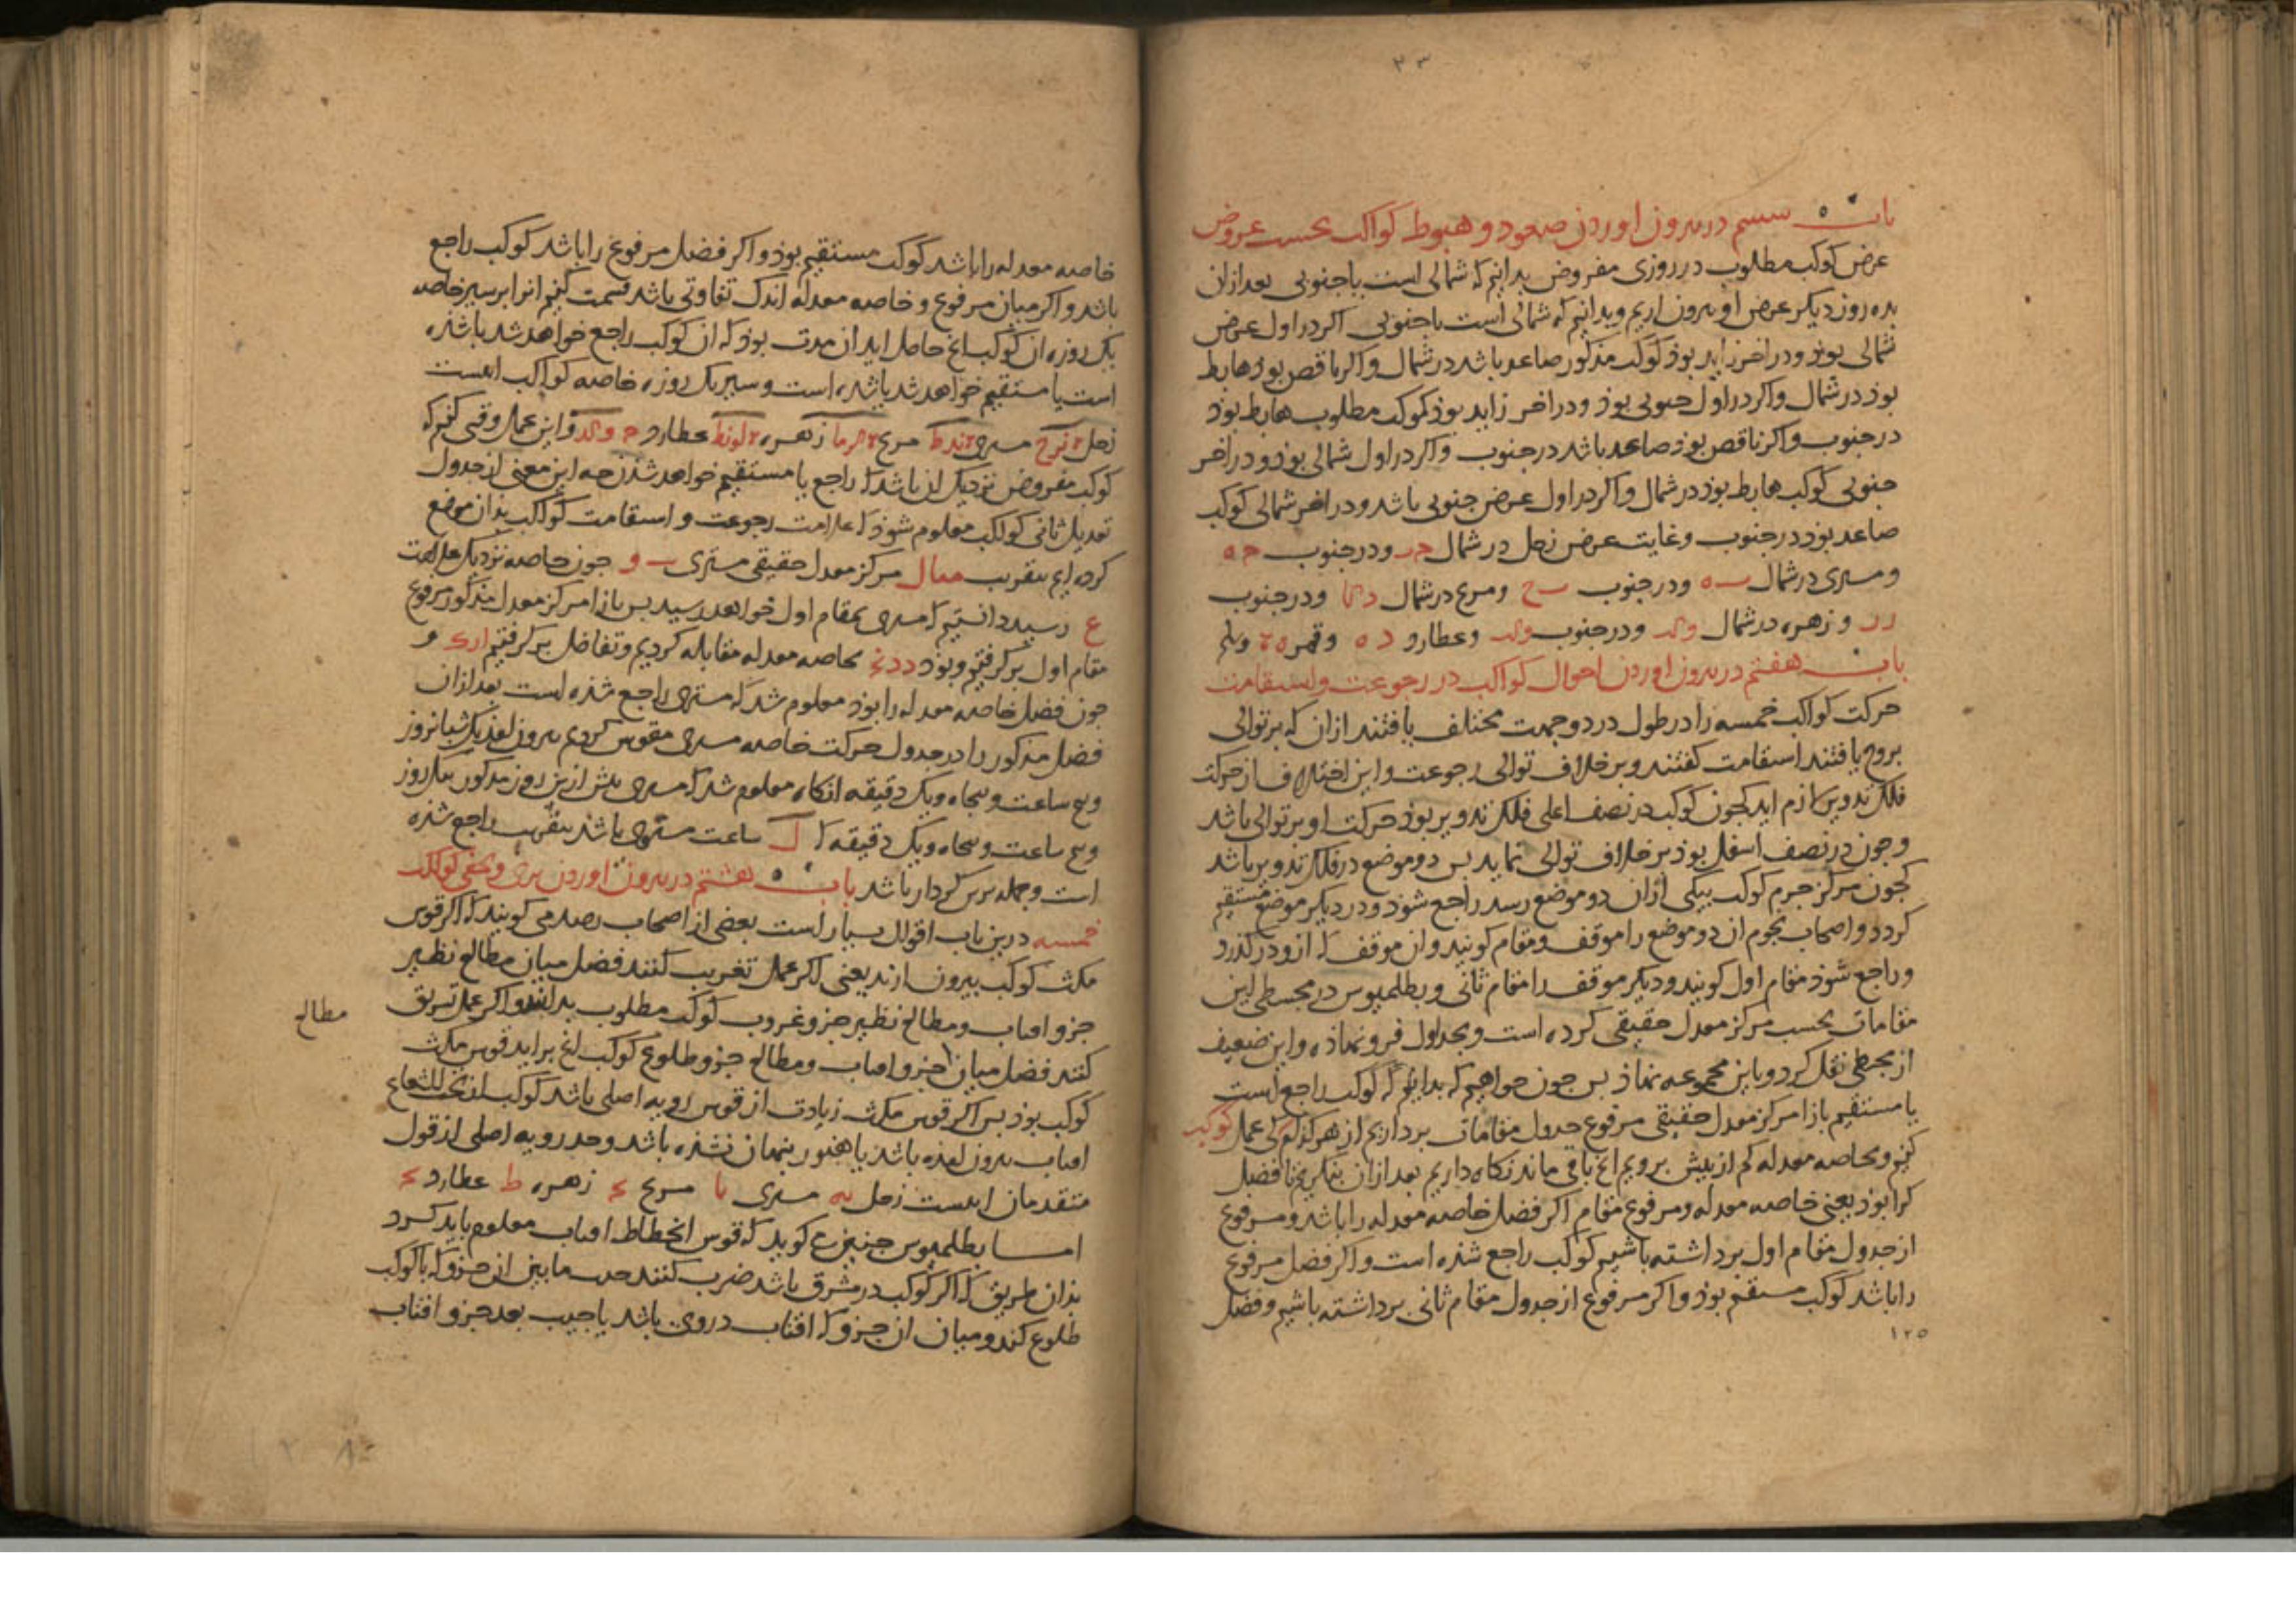 ۲۳
باب ششم در بیرون اوردن صعود و هبوط کواکب بحسب عروض
عرض کوکب مطلوب در روزی مفروض بدانیم که شمالی است یا جنوبی بعد ازان
بده روز دیکر عرض او بیرون اریم و بدانیم که شمالی است یا جنوبی اکر در اول عرض
شمالی بوذ و در اخر زاید بوذ کوکب مذکور صاعد باشد در شمال و اکر ناقص بوذ هابط
بوذ در شمال و اکر در اول جنوبی بوذ و در اخر زاید بوذ کوکب مطلوب هابط بوذ
در جنوب و اکر ناقص بوذ صاعد باشد در جنوب و اکر در اول شمالی بوذ و در اخر
جنوبی کوکب هابط بوذ در شمال و اکر در اول عرض جنوبی باشد و در اخر شمالی کوکب
صاعد بوذ در جنوب و غایت عرض زحل در شمال و در جنوب
و مشتری در شمال و در جنوب و مریخ در شمال و در جنوب
و زهره در شمال و در جنوب و عطارد و قمر
باب هفتم در بیرون اوردن احوال کواکب در رجوعت و استقامت
حرکت کواکب خمسه را در طول در دو جهت مختلف یافتند ازان که بر توالی
بروج یافتند استقامت کفتند و بر خلاف توالی رجوعت و این اختلاف از حرکت
فلک تدویر لازم اید کجون کوکب در نصف اعلی فلک تدویر بوذ حرکت او بر توالی باشد
و جون در نصف اسفل بوذ بر خلاف توالی نماید بس دو موضع در فلک تدویر باشد
کجون مرکز جرم کوکب بیکی ازان دو موضع رسد راجع شوذ و در دیکر موضع مستقیم
کردد و اصحاب نجوم ان دو موضع را موقف و مقام کویند و ان موقف که ازو در کذرد
و راجع شوذ مقام اول کویند و دیکر موقف را مقام ثانی و بطلمیوس در مجسطی این
مقامات بحسب مرکز معدل حقیقی کرده است و بجداول فرو نهاذه و این ضعیف
از مجسطی نقل کرد و باین مجموعه نهاذ بس جون خواهیم که بدانیم که کوکب راجع است
یا مستقیم بازا مرکز معدل حقیقی مرفوع جدول مقامات برداریم از هر کدام کی عمل کوکب
کنیم و بخاصه معدله کم از بیش برویم انج باقی ماند نکاه داریم بعد ازان بنکریم تا فضل
کرا بوذ یعنی خاصه معدله و مرفوع مقام اکر فضل خاصه معدله را باشد و مرفوع
از جدول مقام اول برداشته باشیم کوکب راجع شذه است و اکر فضل مرفوع
را باشد کوکب مستقیم بوذ و اکر مرفوع از جدول مقام ثانی برداشته باشیم و فضل
۱۲۵
خاصه معدله را باشد کوکب مستقیم بوذ و اکر فضل مرفوع را باشد کوکب راجع
باشد و اکر میان مرفوع و خاصه معدله اندک تفاوتی باشد قسمت کنیم انرا بر سیر خاصه
یک روزه ان کوکب انج حاصل اید ان مدت بوذ که ان کوکب راجع خواهد شد یا شذه
است یا مستقیم خواهد شد یا شذه است و سیر یک روزه خاصه کواکب اینست
زحل مشتری مریخ زهره عطارد و این عمل وقتی کنیم که
کوکب مفروض نزدیک ان باشد که راجع یا مستقیم خواهد شدن جه این معنی از جدول
تعدیل ثانی کواکب معلوم شوذ که علامت رجوعت و استقامت کواکب بدان موضع
کرده ایم بتقریب مثال مرکز معدل حقیقی مشتری و جون خاصه نزدیک علامت
رسید دانستیم که مشتری بمقام اول خواهد رسید بس بازا مرکز معدل مذکور مرفوع
مقام اول بر کرفتیم و بوذ بخاصه معدله مقابله کردیم و تفاضل بر کرفتیم و
جون فضل خاصه معدله را بوذ معلوم شد که مشتری راجع شذه است بعد ازان
فضل مذکور را در جدول حرکت خاصه مشتری مقوس کردیم بیرون امذ یک شبانروز
و بنج ساعت و بنجاه و یک دقیقه انکاه معلوم شد که مشتری بیش ازین روز مذکور بیک روز
و بنج ساعت و بنجاه و یک دقیقه که ساعت مستوی باشد بتقریب راجع شذه
است و جمله برین کردار باشد باب هشتم در بیرون اوردن مرئی و مخفی کواکب
خمسه درین باب اقوال بسیار است بعضی از اصحاب رصد می کویند که اکر قوس
مکث کوکب بیرون ارند یعنی اکر عمل تغریب کنند فضل میان مطالع نظیر
جزو افتاب و مطالع نظیر جزو غروب کوکب مطلوب بدانند و اکر عمل تشریق
مطالع
کنند فضل میان جزو افتاب و مطالع جزو طلوع کوکب انج براید قوس مکث
کوکب بوذ بس اکر قوس مکث زیادت از قوس رویه اصلی باشد کوکب از تحت الشعاع
افتاب بیرون امذه باشد یا هنوز بنهان نشذه باشد و حد رویه اصلی از قول
متقدمان اینست زحل یه مشتری یا مریخ زهره ط عطارد
اما بطلمیوس جنین می کوید که قوس انحطاط افتاب معلوم باید کرد
بدان طریق که اکر کوکب در مشرق باشد ضرب کنند جیب ما بین ان جزو که با کوکب
طلوع کند و میان ان جزو که افتاب در وی باشد یا جیب بعد جزو افتاب